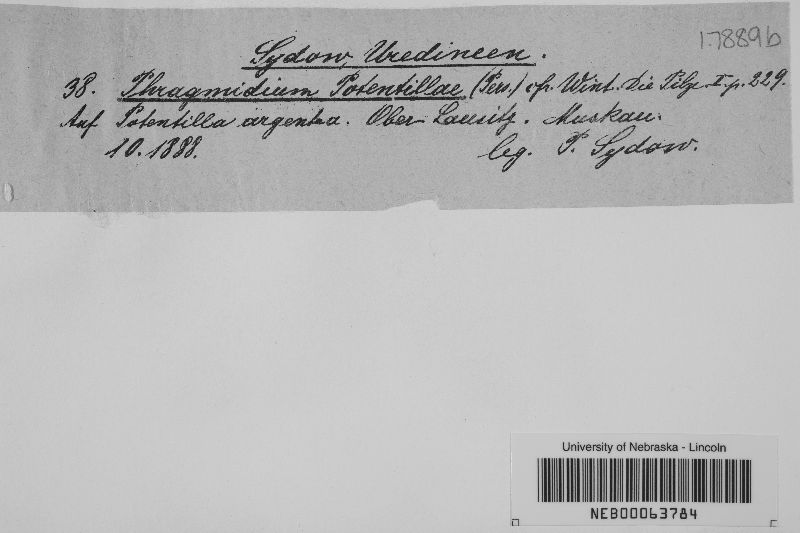 178896
Sydow, Uredineen.
38. Phragmidium Potentillae (Pers.) cfr. Wint. Die Pilze I. p. 229.
Auf Potentilla argentea. Ober-Lausitz. Muskau.
10. 1888. leg. P. Sydow.
University of Nebraska - Lincoln
NEB00063784